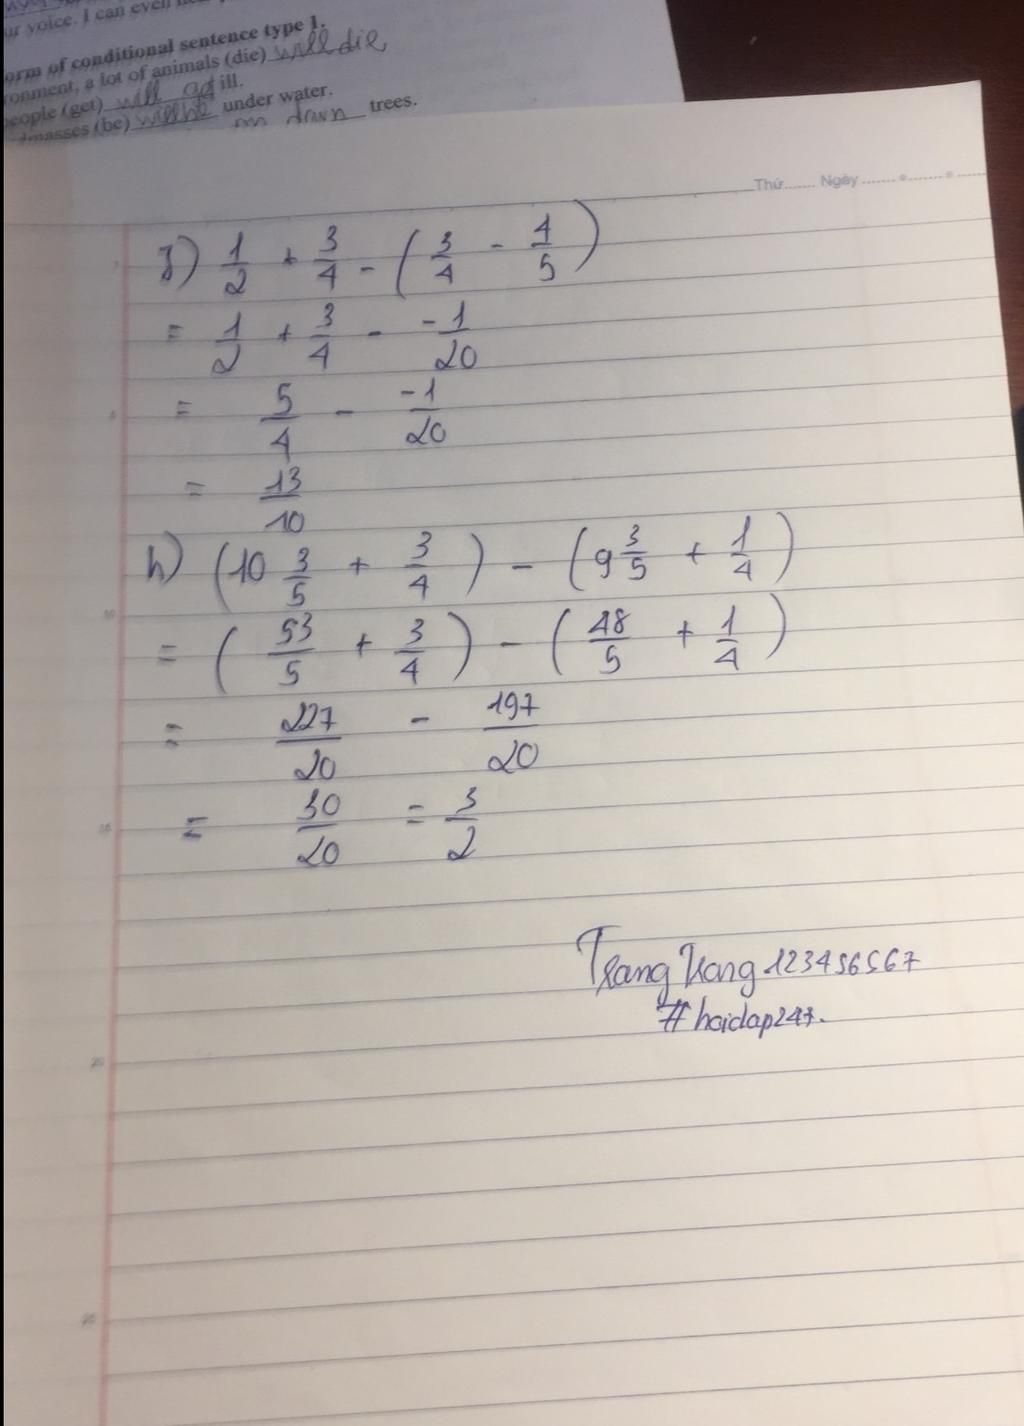 ur voice. I can even
orm of conditional sentence type 1.
ronment, a lot of animals (die) will die
people (get) will ill.
masses (be) will be under water.
down trees.
Thứ....... Ngày
g) 1/2 + 3/4 - (3/4 - 4/5)
= 1/2 + 3/4 - -1/20
= 5/4 - -1/20
= 13/10
h) (10 3/5 + 3/4) - (9 3/5 + 1/4)
= (53/5 + 3/4) - (48/5 + 1/4)
= 227/20 - 197/20
= 30/20 = 3/2
Trang Trang 123456567
#hoidap247.